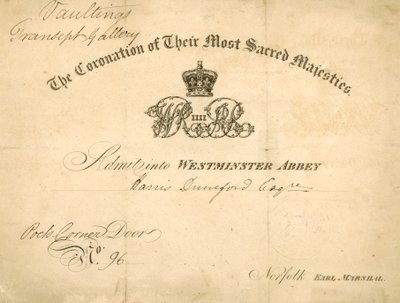 Vaultings
Transept Gallery
The Coronation of Their Most Sacred Majesties.
WR IIII AR
Admit into WESTMINSTER ABBEY
Harris Dunsford Esqre
Poets Corner Door
No. 96
Norfolk EARL MARSHAL.